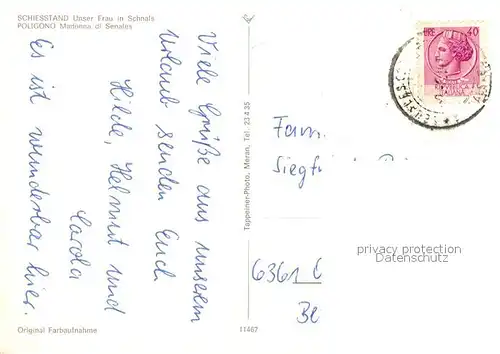 SCHIESSTAND Unser Frau in Schnals
POLIGONO Madonna di Senales
Viele Grüße aus unserem
Urlaub senden Euch
Hilde, Helmut und
Carola
Es ist wunderbar hier.
Original Farbaufnahme
Tappeiner-Photo, Meran, Tel. 23 4 35
11467
LIRE 40
Fam.
Siegfr
6361
Be
privacy protection
Datenschutz